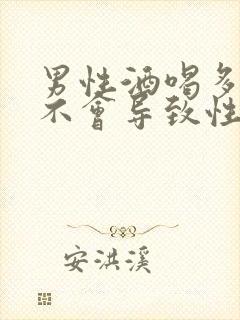 男性酒喝多
不會导致性
安洪溪